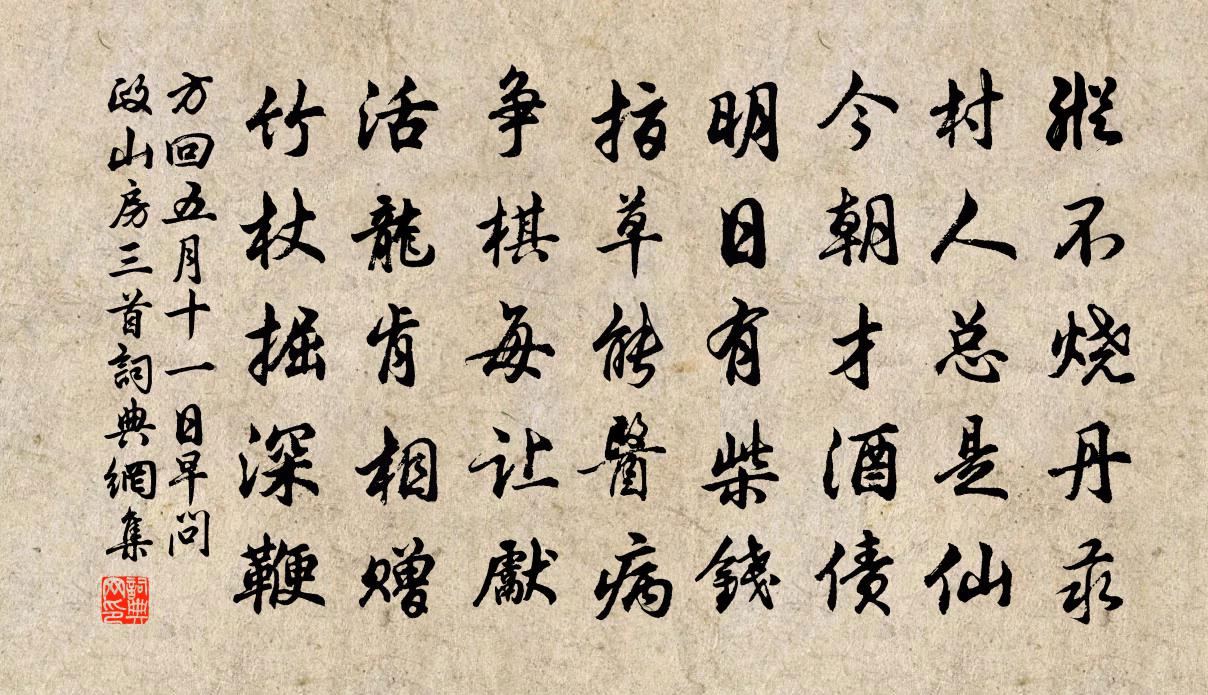 縱不烧丹汞
村人总是仙
今朝才酒债
明日有柴錢
指草能醫病
争棋每让獻
活龍肯相赠
竹杖掘深鞭
方回五月十一日早問
政山房三首詞典網集
詞典網印